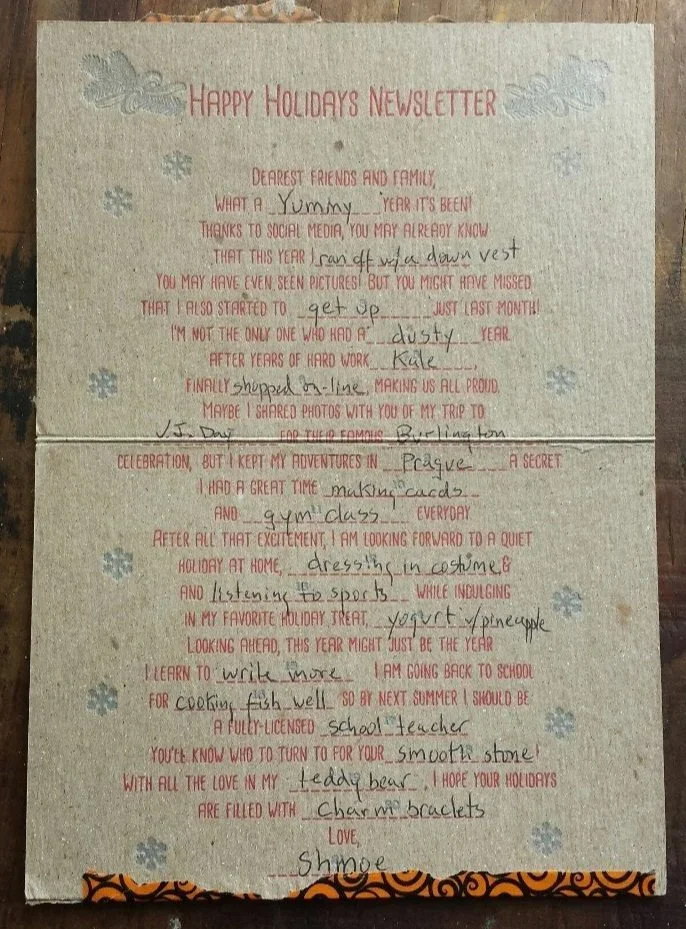 HAPPY HOLIDAYS NEWSLETTER
DEAREST FRIENDS AND FAMILY,
WHAT A Yummy YEAR IT'S BEEN!
THANKS TO SOCIAL MEDIA, YOU MAY ALREADY KNOW
THAT THIS YEAR I ran off w/a down vest
YOU MAY HAVE EVEN SEEN PICTURES! BUT YOU MIGHT HAVE MISSED
THAT I ALSO STARTED TO get up JUST LAST MONTH!
I'M NOT THE ONLY ONE WHO HAD A dusty YEAR.
AFTER YEARS OF HARD WORK Kale,
FINALLY shopped on-line, MAKING US ALL PROUD.
MAYBE I SHARED PHOTOS WITH YOU OF MY TRIP TO
V.J. Day FOR THEIR FAMOUS Burlington
CELEBRATION, BUT I KEPT MY ADVENTURES IN Prague A SECRET.
I HAD A GREAT TIME making cards
AND gym class EVERYDAY
AFTER ALL THAT EXCITEMENT, I AM LOOKING FORWARD TO A QUIET
HOLIDAY AT HOME, dressing in costume &
AND listening to sports WHILE INDULGING
IN MY FAVORITE HOLIDAY TREAT, yogurt w/pineapple
LOOKING AHEAD, THIS YEAR MIGHT JUST BE THE YEAR
I LEARN TO write more I AM GOING BACK TO SCHOOL
FOR cooking fish well SO BY NEXT SUMMER I SHOULD BE
A FULLY-LICENSED school teacher
YOU'LL KNOW WHO TO TURN TO FOR YOUR smooth stone!
WITH ALL THE LOVE IN MY teddy bear, I HOPE YOUR HOLIDAYS
ARE FILLED WITH Charm braclets
LOVE,
Shmoe